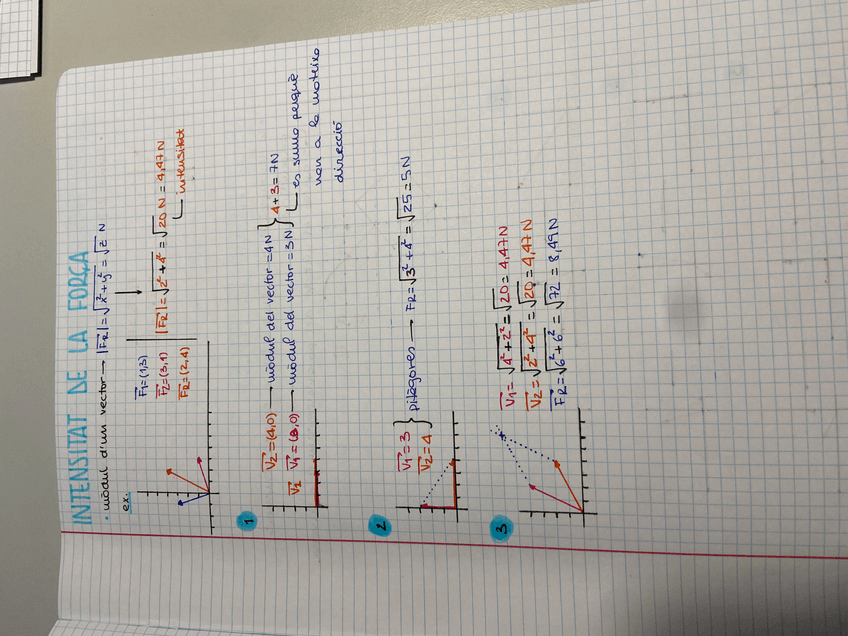 INTENSITAT DE LA FORÇA
· mòdul d'un vector → |FR| = √x² + y² = √z N
ex:
F1 = (1,3)
F2 = (3,1)
FR = (2,4)
|FR| = √2² + 4² = √20 N = 4,47 N
intensitat
1
V2 = (4,0) → mòdul del vector = 4N
V1 V1 = (3,0) → mòdul del vector = 3N
4 + 3 = 7N
es suma perquè
van a la mateixa
direcció
2
V1 = 3
V2 = 4
pitàgores → FR = √3² + 4² = √25 = 5 N
3
V1 = √4² + 2² = √20 = 4,47 N
V2 = √2² + 4² = √20 = 4,47 N
FR = √6² + 6² = √72 = 8,49 N